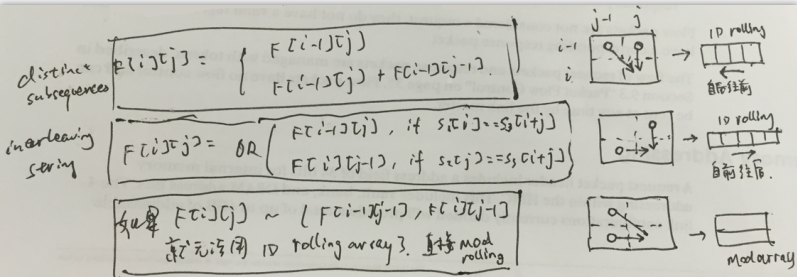 distinct
subsequences
F[i][j] = { F[i-1][j]
F[i-1][j] + F[i-1][j-1]
j-1 j
i-1
i
→ 1D rolling
自后往前
interleaving
string
F[i][j] = OR ( F[i-1][j], if s1[i]==s3[i+j]
F[i][j-1], if s2[j]==s3[i+j]
→ 1D rolling
自前往后.
如果 F[i][j] ~ { F[i-1][j-1], F[i][j-1]
就无法用 1D rolling array了. 直接 mod
rolling
→ Mod array